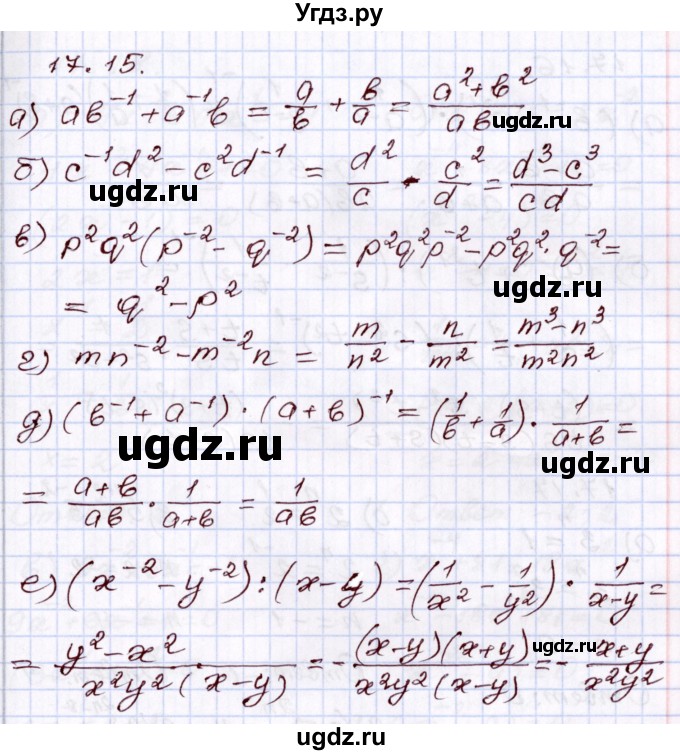 Угдз.ру
17.15.
а) ab⁻¹ + a⁻¹b = a/b + b/a = (a² + b²)/ab
ugdz.ru
б) c⁻¹d² - c²d⁻¹ = d²/c - c²/d = (d³ - c³)/cd
ugdz.ru
в) p²q²(p⁻² - q⁻²) = p²q²p⁻² - p²q²·q⁻² =
= q² - p²
ugdz.ru
г) mn⁻² - m⁻²n = m/n² - n/m² = (m³ - n³)/m²n²
д) (b⁻¹ + a⁻¹)·(a + b)⁻¹ = (1/b + 1/a)·1/(a+b) =
ugdz.ru
ugdz.ru
= (a+b)/ab · 1/(a+b) = 1/ab
е) (x⁻² - y⁻²) : (x - y) = (1/x² - 1/y²)·1/(x-y) =
ugdz.ru
= (y² - x²)/(x²y²(x-y)) = -(x-y)(x+y)/(x²y²(x-y)) = -(x+y)/x²y²
ugdz.ru
ugdz.ru